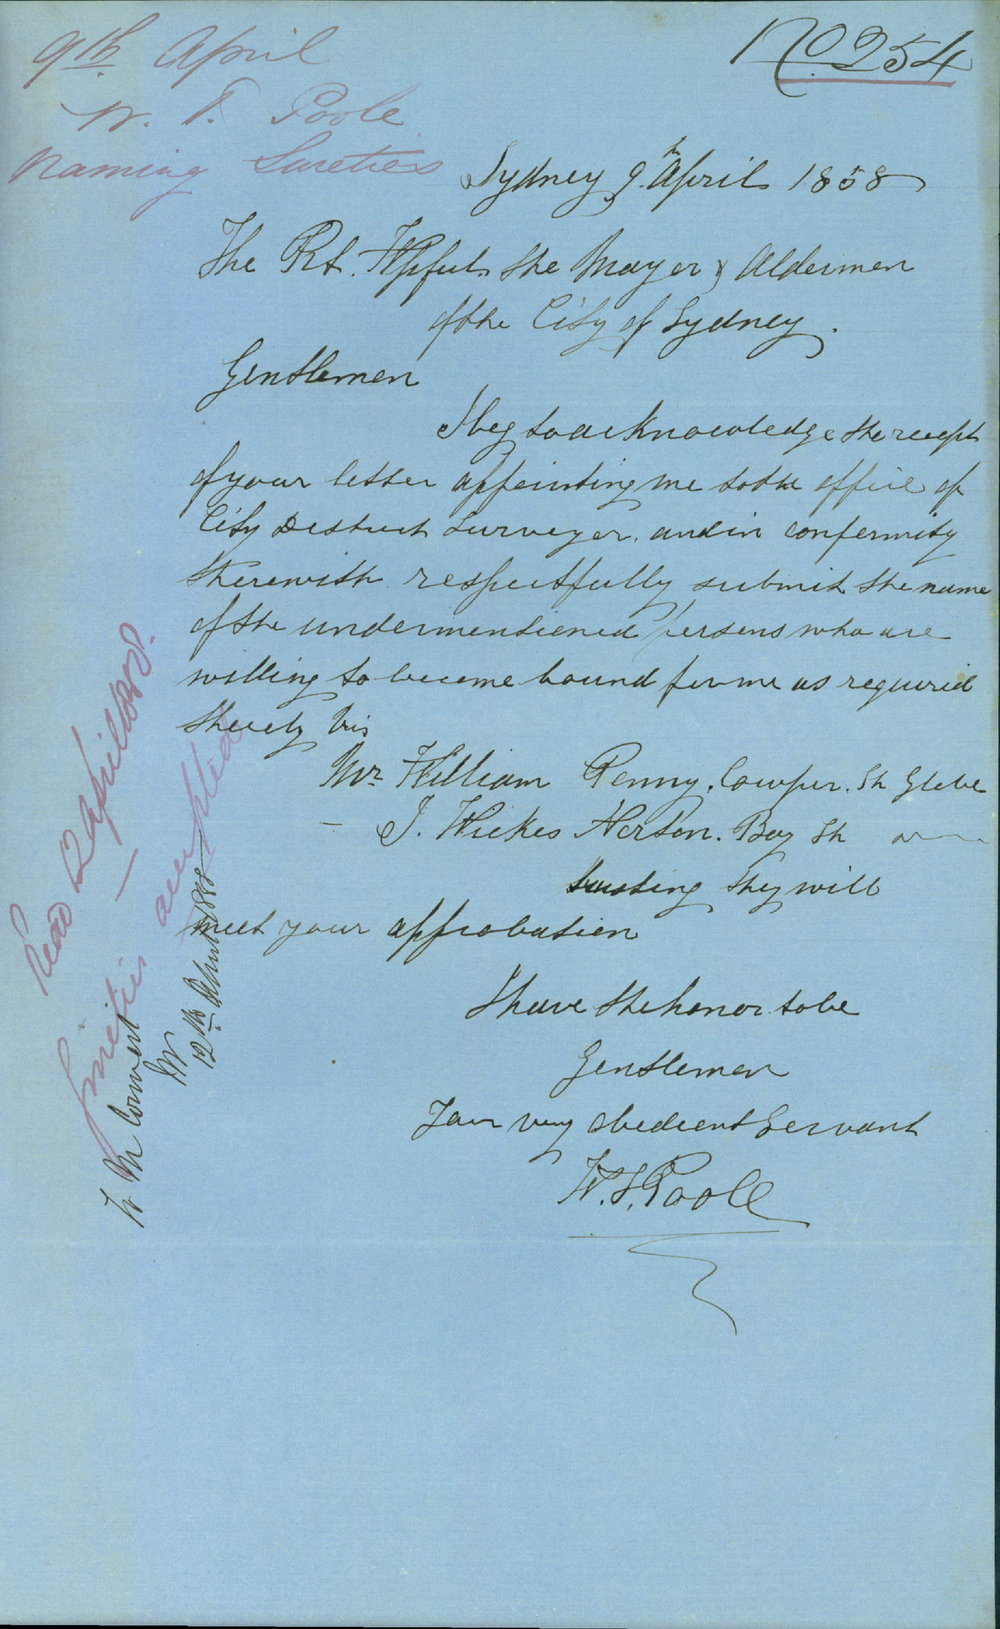 No 254
9th April
W. T. Poole
Naming Sureties
Sydney 9th April 1858
The Rt. Wpful the Mayor & Aldermen
of the City of Sydney.
Gentlemen
I beg to acknowledge the receipt
of your letter appointing me to the office of
City District Surveyor. and in conformity
therewith respectfully submit the name
of the undermentioned persons who are
willing to become bound for me as required
thereby Viz
Mr William Penny. Cowper. St Glebe
- J. Wickes Norton. Bay St
trusting they will
meet your approbation
I have the honor to be
Gentlemen
Your very obedient Servant
W. T. Poole
Read 12 April 1858.
Sureties accepted
To Mr
12th April 1858